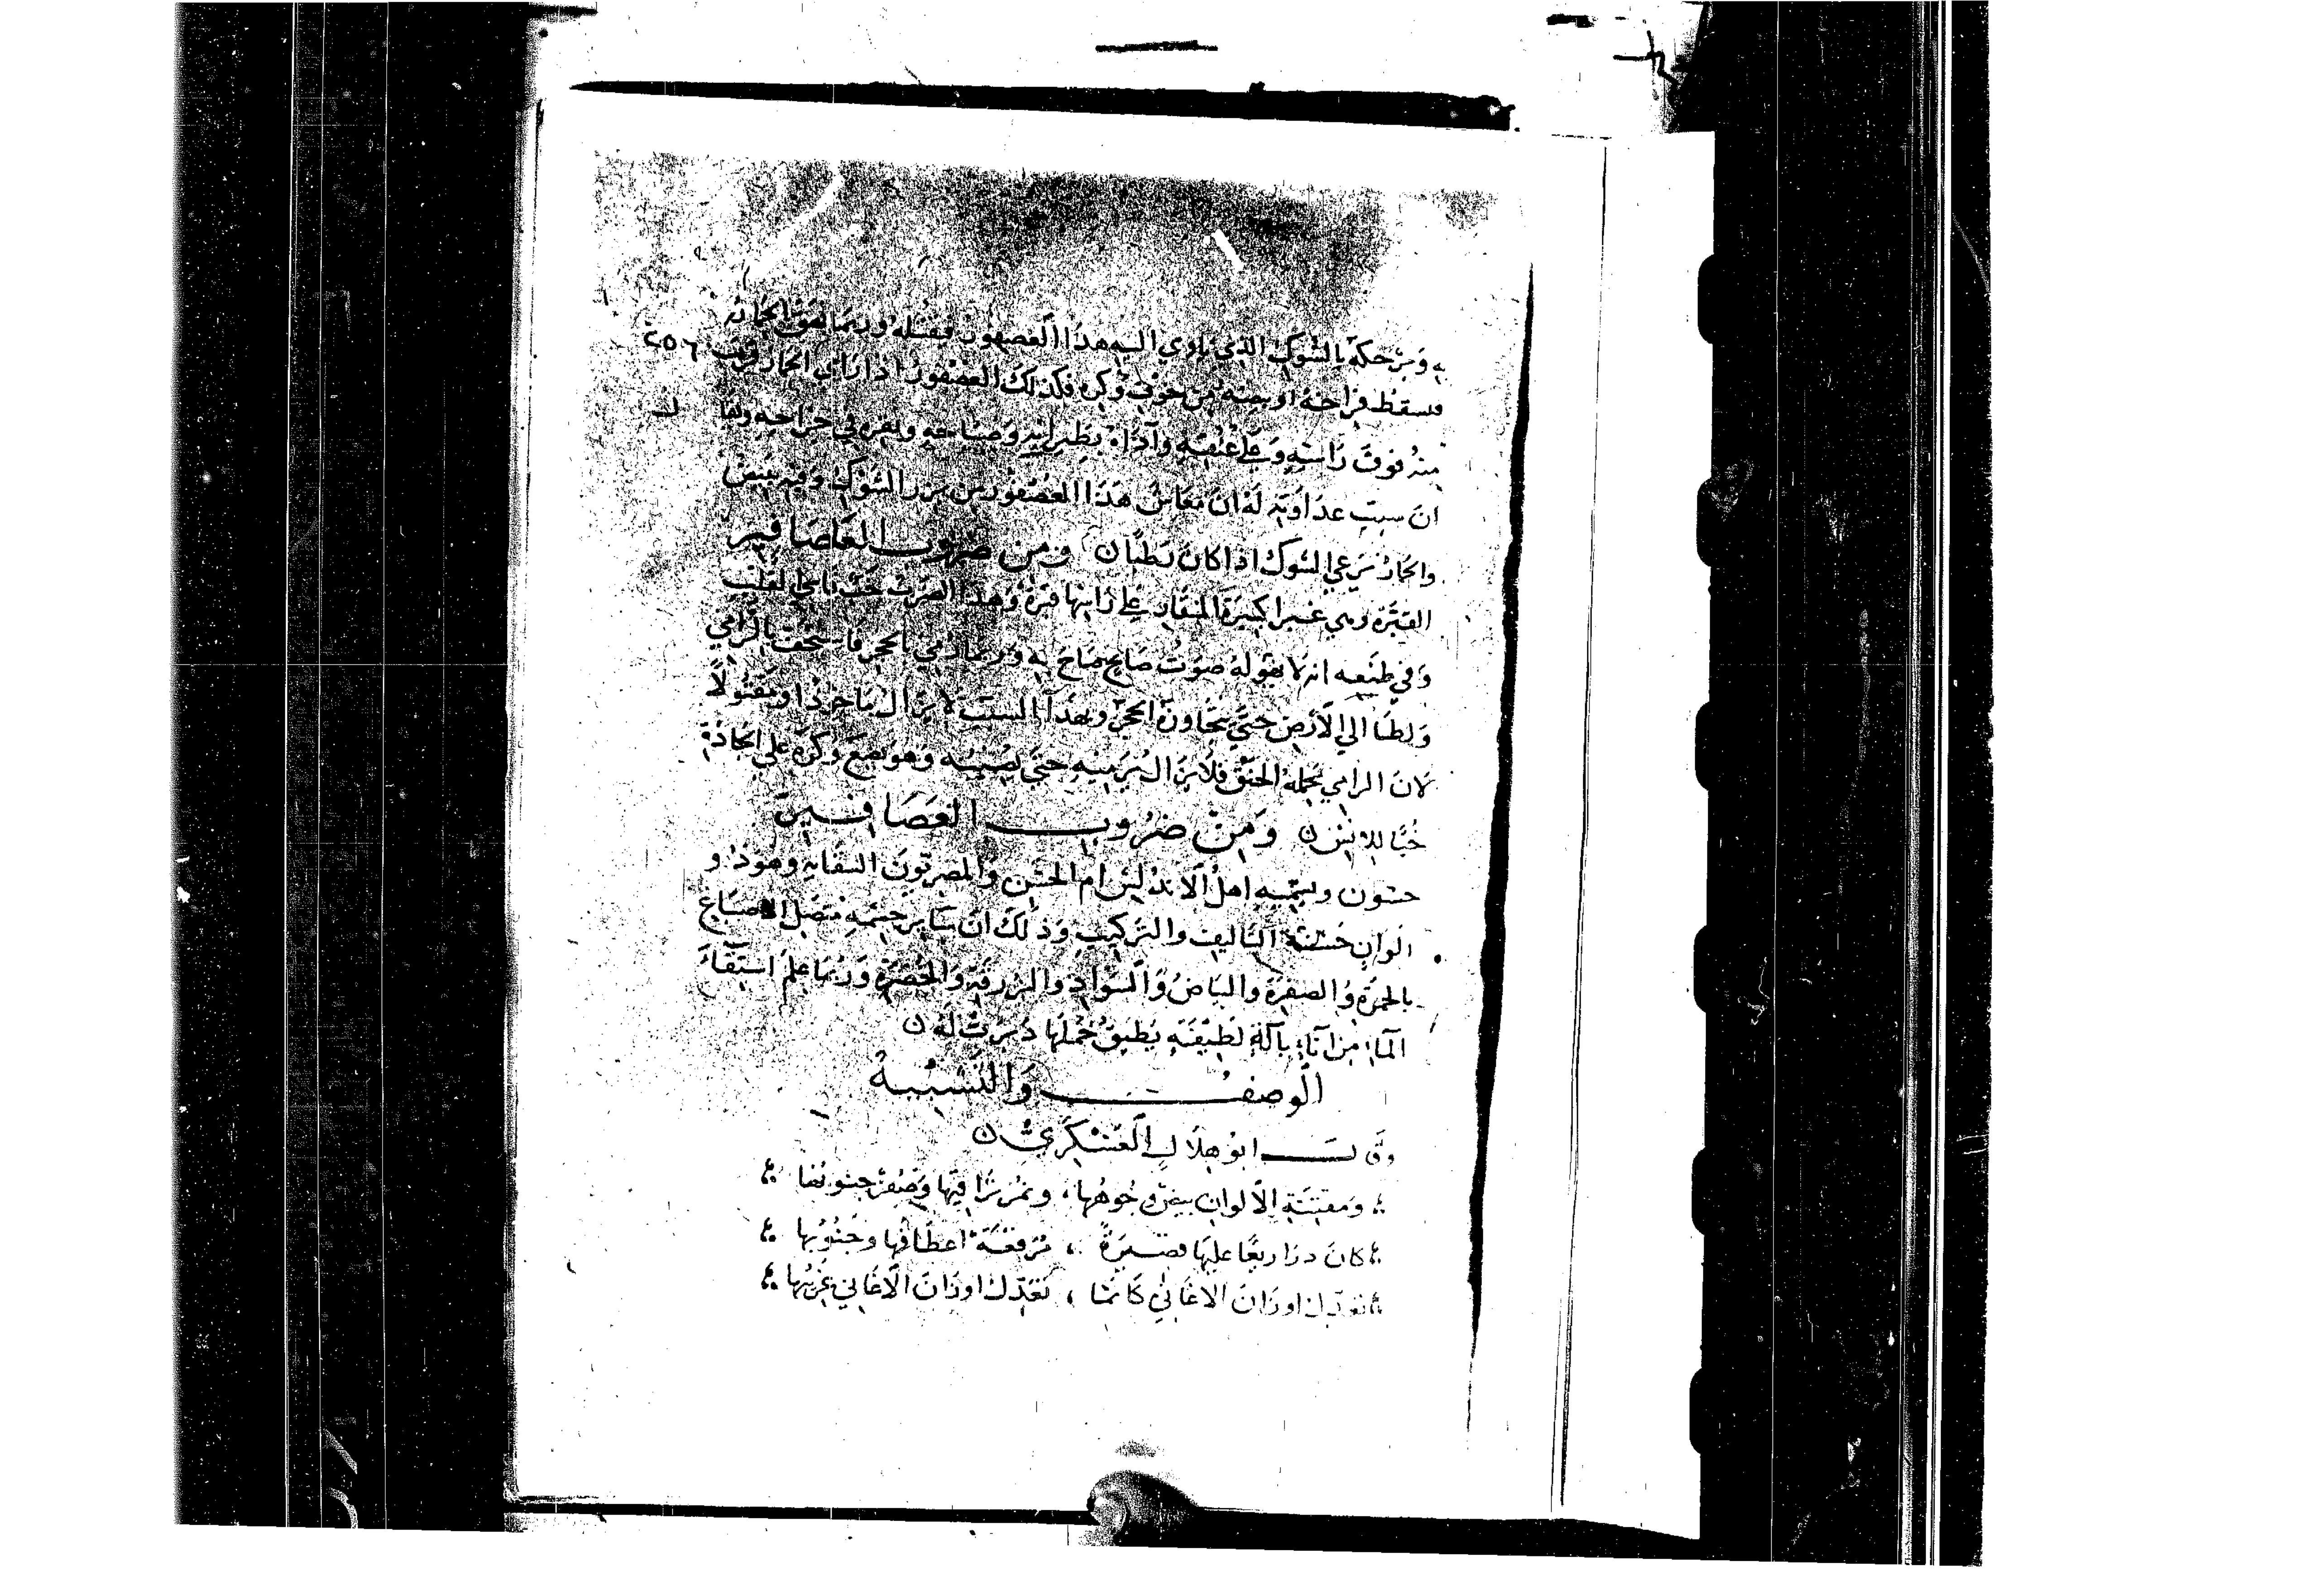 به ومن حكه بالشوك الذي ياوي اليه هذا العصفور فيقتله وربما نهق الحمار
فسقط فراخه او بيضه من جوف وكره فكذلك العصفور اذا راي الحمار رفرف
٢٥٦
منه فوق راسه وعلى عنقه وآذاه بطيرانه وصياحه ونقره في جراحه
ان سبب عداوته له ان معاش هذا العصفور من بزر الشوك وفيه يبيض
والحمار يرعي الشوك اذا كان رطبا ن ومن ضروب العصافير
القبرة وهي غبرا كبيرة المنقار على راسها قبرة وهذا الضرب قاسي القلب
وفي طبعه انه لا يهوله صوت صايح صاح به وربما رمي بالحجر فاستخف بالرامي
ولطا الي الارض حتي يتجاوزه الحجر وبهذا السبب لا يزال ماخوذا او مقتولا
لان الرامي يحمله الحنق فلا يزال يرميه حتي يصيبه وهو يضع وكره علي الجادة
حبا للانس ن ومن ضروب العصافير
حسون ويسميه اهل الاندلس ام الحسن والمصريون السقايه وهو ذو
الوان حسنة التاليف والتركيب وذلك ان ساير جسمه متصل الاصباغ
بالحمرة والصفرة والبياض والسواد والزرقة والخضرة وربما علم استقاء
الماء من اناء بآلة لطيفة يطيق حملها دربت له ن
الوصف والتشبيه
وقال ابو هلال العسكري ن
ومفتنة الالوان بيض وجوهها ، ونمر تراقيها وصفر جنوبها
كان دراريعا عليها قصيرة ، مرقعة اعطافها وجيوبها
تعدل اوزان الاغاني كانما ، تعدل اوزان الاغاني عريبها